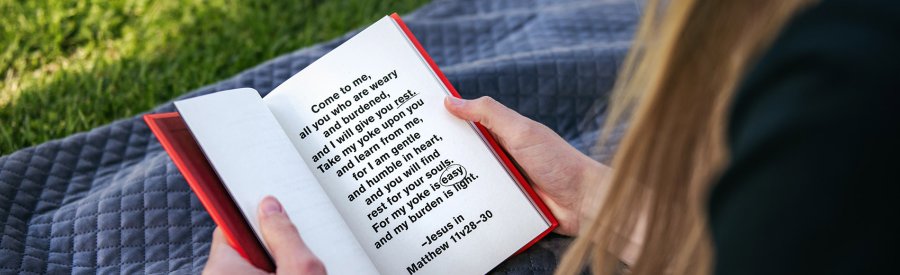 Come to me,
all you who are weary
and burdened,
and I will give you rest.
Take my yoke upon you
and learn from me,
for I am gentle
and humble in heart,
and you will find
rest for your souls.
For my yoke is easy
and my burden is light.
–Jesus in
Matthew 11v28-30